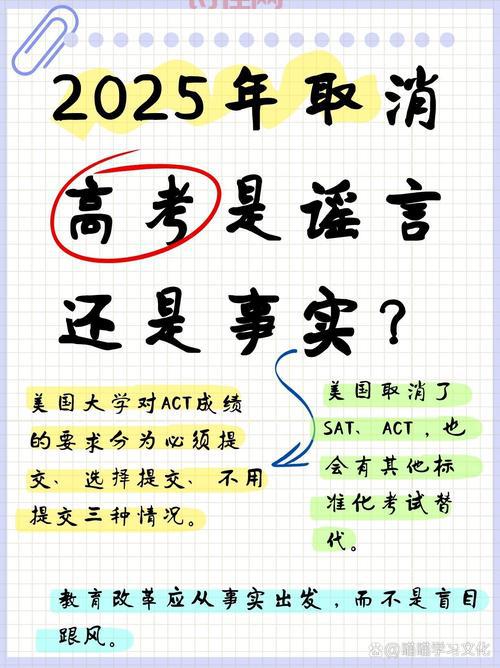 2025年取消
高考是谣言
还是事实?
美国大学对ACT成绩
的要求分为必须提
交、选择提交、不用
提交三种情况。
美国取消了
SAT、ACT,也
会有其他标
准化考试替
代。
教育改革应从事实出发,而不是盲目
跟风。
喵喵学习文化